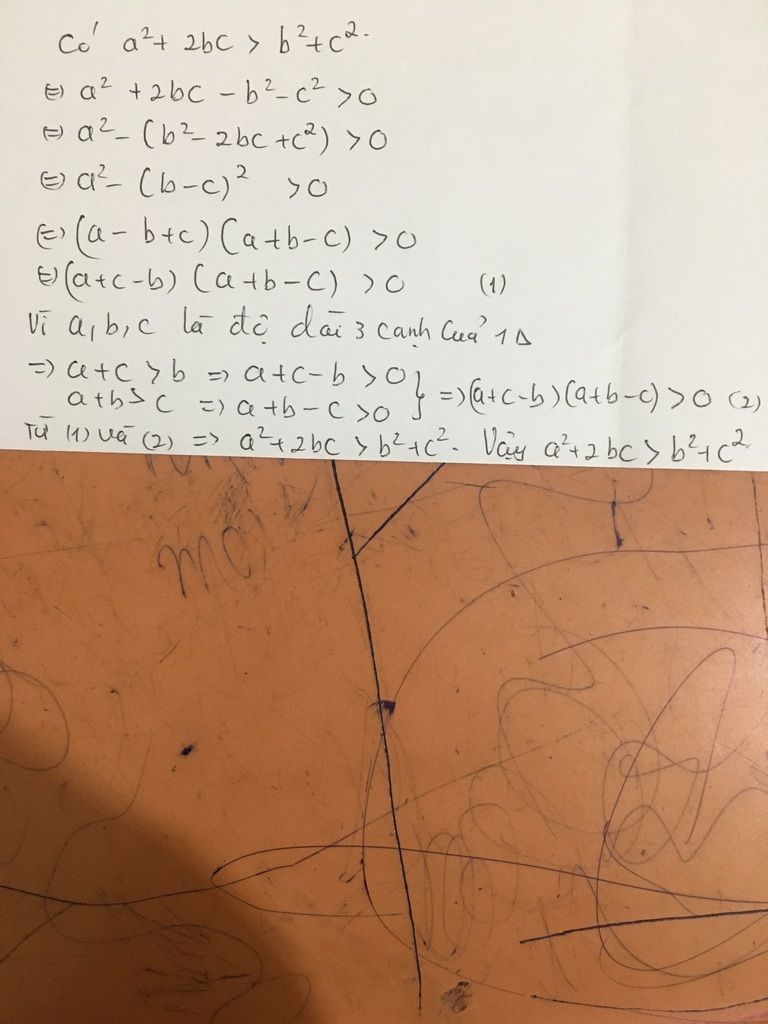 Có a² + 2bc > b² + c².
⇔ a² + 2bc - b² - c² > 0
⇔ a² - (b² - 2bc + c²) > 0
⇔ a² - (b - c)² > 0
⇔ (a - b + c) (a + b - c) > 0
⇔ (a + c - b) (a + b - c) > 0 (1)
Vì a, b, c là độ dài 3 cạnh của 1 Δ
=> a + c > b => a + c - b > 0
a + b > c => a + b - c > 0 } => (a + c - b) (a + b - c) > 0 (2)
Từ (1) và (2) => a² + 2bc > b² + c². Vậy a² + 2bc > b² + c².